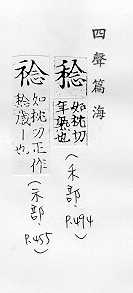 四聲篇海
稔
如枕切
年熟也
(禾部,
P.494)
稔
如枕切正作
稔歲一也
(示部,
P.455)